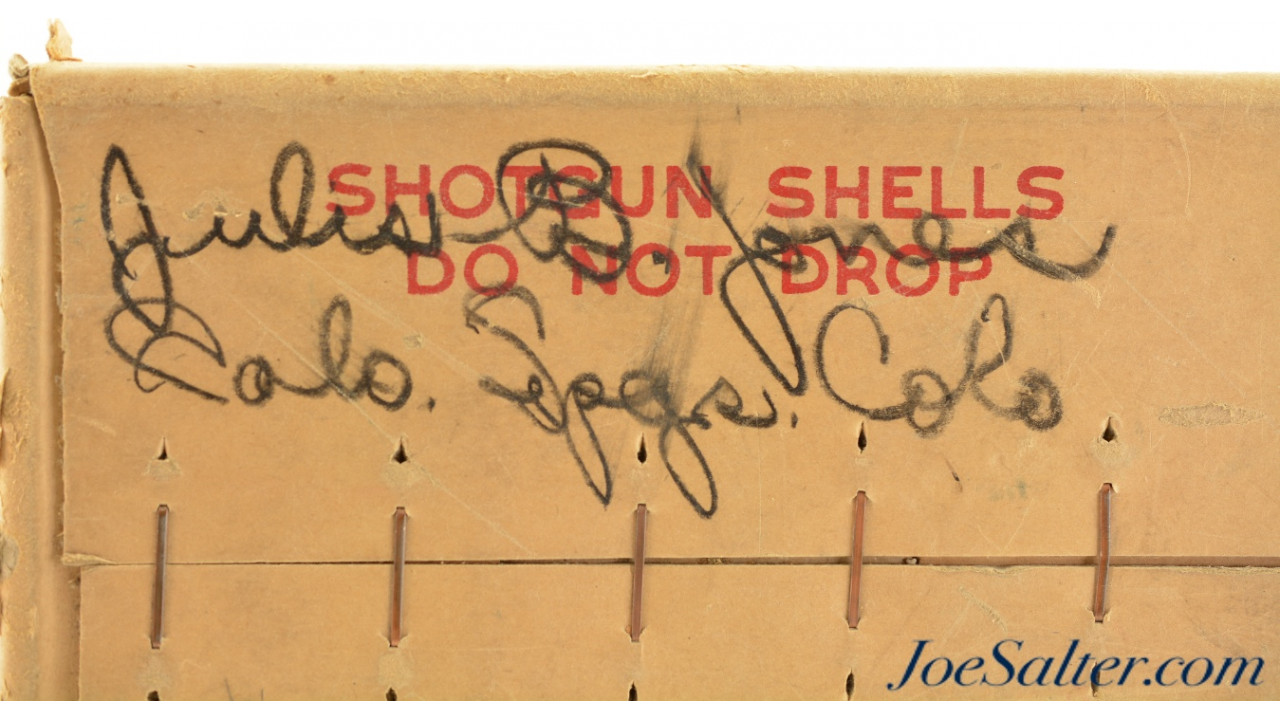 SHOTGUN SHELLS
Julis B. Jones
DO NOT DROP
Colo. Spgs. Colo
JoeSalter.com